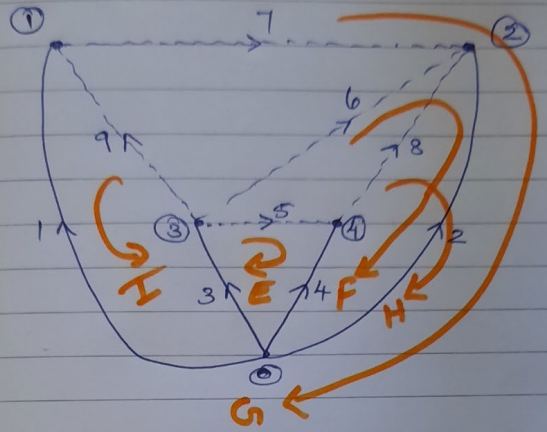 ① 7 ②
6
9 8
③ 5 ④
1 2
3 E 4 F
I H
⓪
G